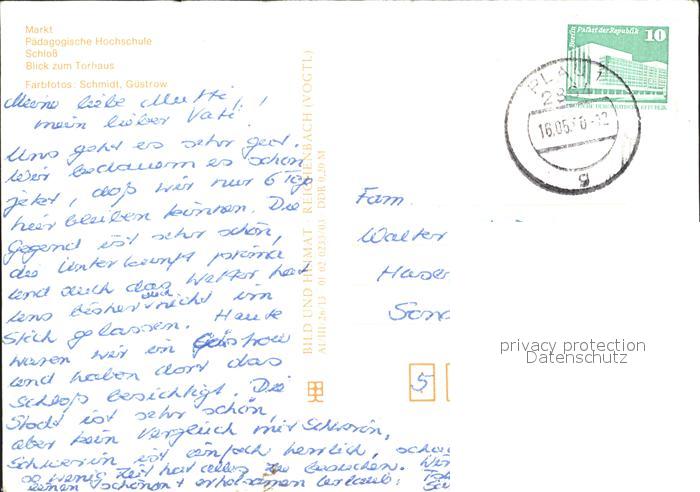 Markt
Pädagogische Hochschule
Schloß
Blick zum Torhaus
Farbfotos: Schmidt, Güstrow
Meine liebe Mutti!,
mein lieber Vati!
Uns geht es sehr gut.
Wir bedauern es schon
jetzt, daß wir nur 6 Tage
hier bleiben können. Die
Gegend ist sehr schön,
die Unterkunft prima
und auch das Wetter hat
uns bisher auch nicht im
Stich gelassen. Heute
waren wir in Güstrow
und haben dort das
Schloß besichtigt. Die
Stadt ist sehr schön,
aber kein Vergleich mit Schwerin,
Schwerin ist einfach herrlich,
so wenig Zeit hat alles zu besuchen. Wir
einen schönen + erholsamen Urlaub.
BILD UND HEIMAT REICHENBACH (VOGTL)
A1/III/26/13 01 02 0233/03 DDR 0,20 M
Berlin Palast der Republik
10
PLAU
16.05.
-12
g
Fam.
Walter
Hase
Son
5
privacy protection
Datenschutz